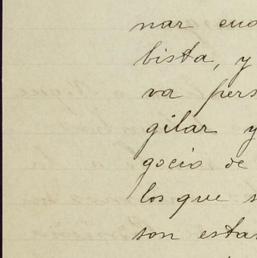 nar cua
bista, y
va pers
gilar y
gocio de
los que s
son esta